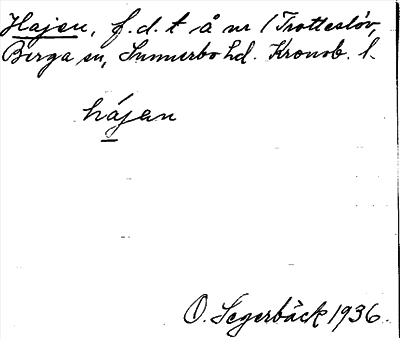 Hajen, f.d. t å nr 1 Trotteslöv,
Berga sn, Sunnerbo hd. Kronob. l.
hájan
O. Segerbäck 1936